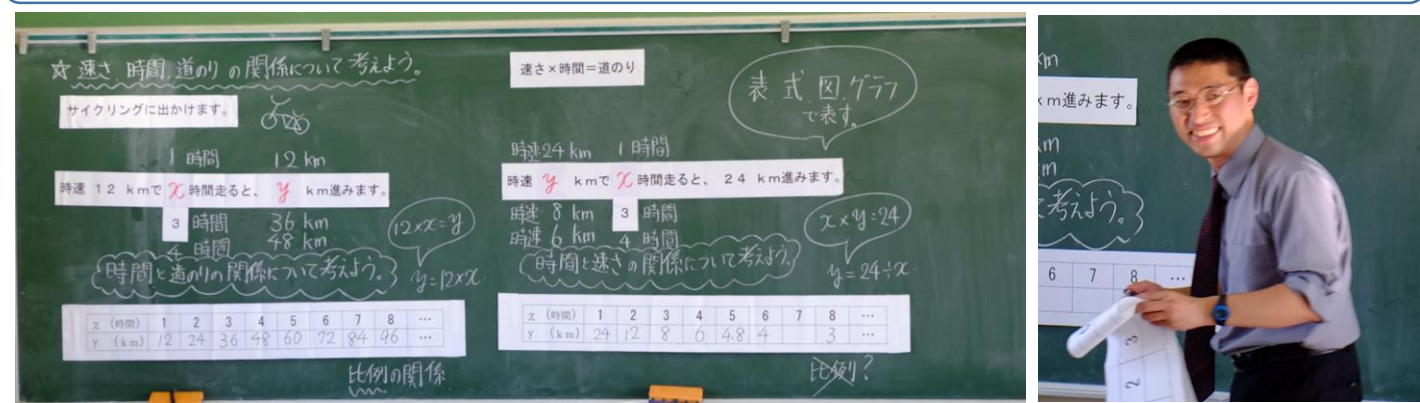 ☆速さ、時間、道のりの関係について考えよう。
サイクリングに出かけます。
1時間 12km
時速 12 kmで x 時間走ると、 y km進みます。
3 時間 36 km
4 時間 48 km
12×x=y
時間と道のりの関係について考えよう。
y=12×x
x (時間) 1 2 3 4 5 6 7 8 …
y (km) 12 24 36 48 60 72 84 96 …
比例の関係
速さ×時間=道のり
表、式、図、グラフ
で表す。
時速24km 1時間
時速 y kmで x 時間走ると、 24 km進みます。
時速 8 km 3 時間
時速 6 km 4 時間
x×y=24
時間と速さの関係について考えよう。
y=24÷x
x (時間) 1 2 3 4 5 6 7 8 …
y (km) 24 12 8 6 4.8 4 3 …
比例?
km
km進みます。
km
m
考えよう。
6 7 8 …
3
2